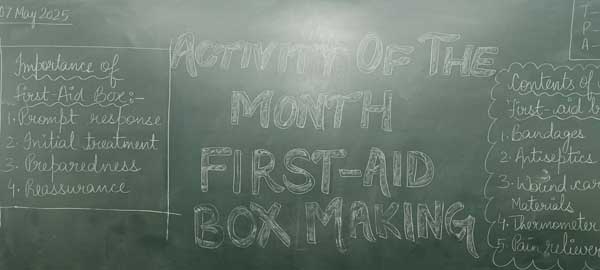 07 May 2025
Importance of
First-Aid Box:-
1. Prompt response
2. Initial treatment
3. Preparedness
4. Reassurance
ACTIVITY OF THE
MONTH
FIRST-AID
BOX MAKING
T-
P-
A-
Contents of
first-aid b
1. Bandages
2. Antiseptics
3. Wound car
Materials
4. Thermometer
5. Pain reliever